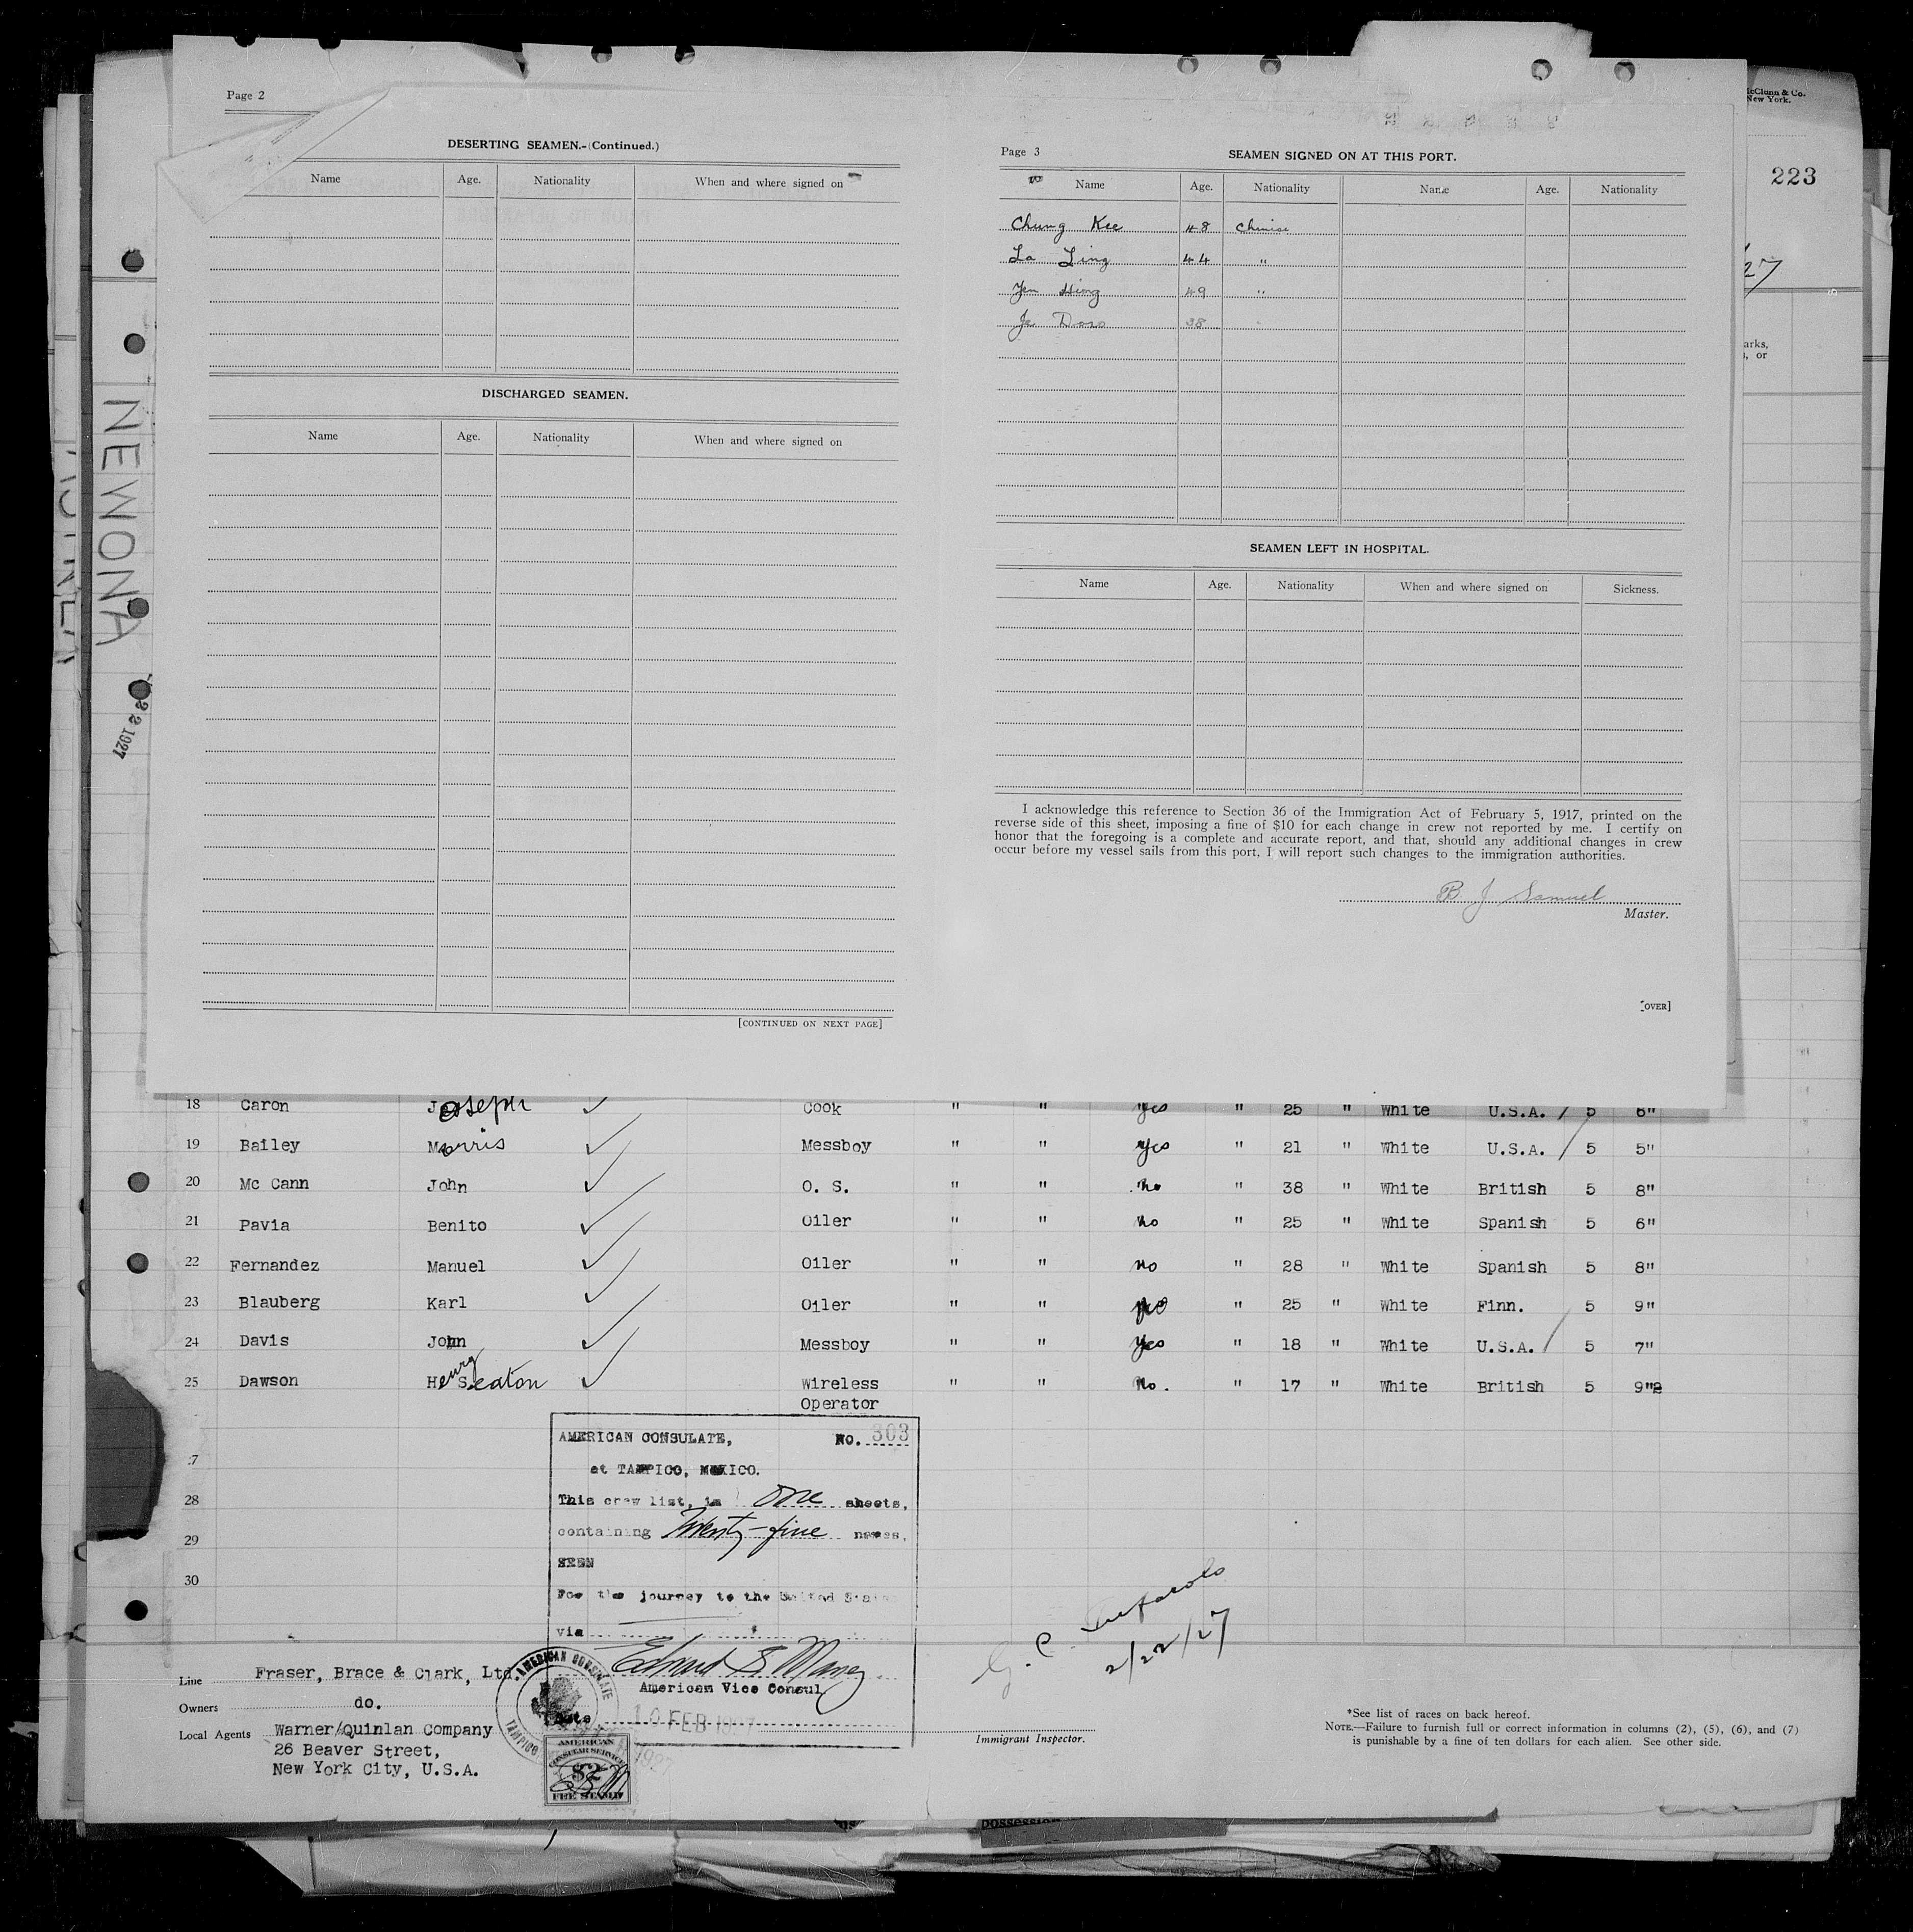 McClunn & Co.
New York.
223
27
arks,
, or
NEWONA
2 2 1927
Page 2
DESERTING SEAMEN.-(Continued.)
Name Age. Nationality When and where signed on
DISCHARGED SEAMEN.
Name Age. Nationality When and where signed on
[CONTINUED ON NEXT PAGE]
Page 3
SEAMEN SIGNED ON AT THIS PORT.
Name Age. Nationality Name Age. Nationality
Chung Kee 48 Chinise
La Ling 44 "
Yen 49 "
38
SEAMEN LEFT IN HOSPITAL.
Name Age. Nationality When and where signed on Sickness.
I acknowledge this reference to Section 36 of the Immigration Act of February 5, 1917, printed on the
reverse side of this sheet, imposing a fine of $10 for each change in crew not reported by me. I certify on
honor that the foregoing is a complete and accurate report, and that, should any additional changes in crew
occur before my vessel sails from this port, I will report such changes to the immigration authorities.
B J Samuel
Master.
[OVER]
18 Caron Joseph Cook " " yes " 25 " White U.S.A. 5 6"
19 Bailey Morris Messboy " " yes " 21 " White U.S.A. 5 5"
20 Mc Cann John O. S. " " no " 38 " White British 5 8"
21 Pavia Benito Oiler " " no " 25 " White Spanish 5 6"
22 Fernandez Manuel Oiler " " no " 28 " White Spanish 5 8"
23 Blauberg Karl Oiler " " no " 25 " White Finn. 5 9"
24 Davis John Messboy " " yes " 18 " White U.S.A. 5 7"
25 Dawson Henry Seaton Wireless " " no. " 17 " White British 5 9"
Operator
27
28
29
30
AMERICAN CONSULATE, No. 303
at TAMPICO, MEXICO.
This crew list, in one sheets,
containing Twenty-five names,
SEEN
For the journey to the United States
via
Edward S Maney
American Vice Consul
Date 10 FEB 1927
AMERICAN CONSULATE
TAMPICO
AMERICAN
CONSULAR SERVICE
$2
FEE STAMP
1927
Line Fraser, Brace & Clark, Ltd.
Owners do.
Local Agents Warner/Quinlan Company
26 Beaver Street,
New York City, U.S.A.
2/22/27
Immigrant Inspector.
*See list of races on back hereof.
NOTE.—Failure to furnish full or correct information in columns (2), (5), (6), and (7)
is punishable by a fine of ten dollars for each alien. See other side.
possession